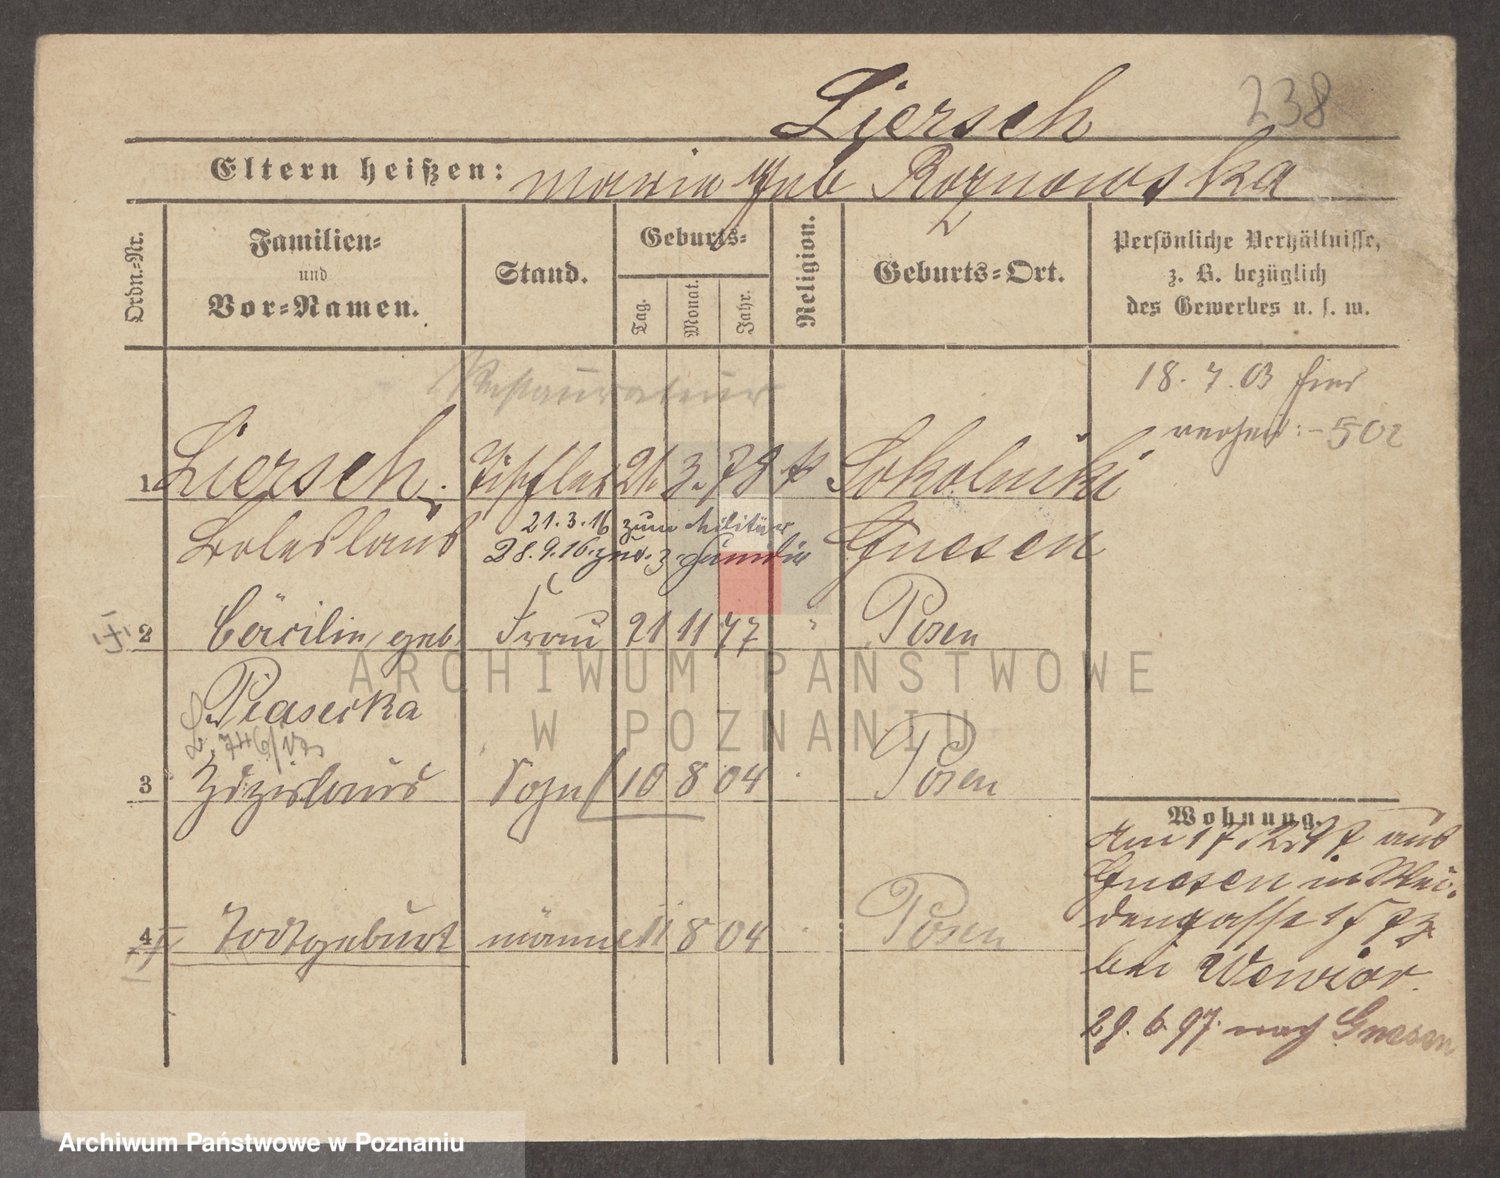 Liersch 238
Eltern heißen: Maria geb Roznowska
Ordn.-Nr.
Familien-
und
Vor-Namen.
Stand.
Geburts-
Tag.
Monat.
Jahr.
Religion.
Geburts-Ort.
Persönliche Verhältnisse,
z. B. bezüglich
des Gewerbes u. s. w.
Restaurateur
18. 7. 03 hier
verheir: - 502
1 Liersch, Tischler 21. 3. 78 k Sokolniki
Boleslaus Gnesen
21.3.16 zum Militär
28.9.16. zur. z. Familie
2 Cäcilie, geb. Frau 21 11 77 " Posen
Piasecka
3 Zdzislaus Sohn 10 8 04 Posen
4 Todtgeburt männl 11 8 04 Posen
Wohnung.
Am 17. 2. 97 aus
Gnesen in
bei Wewior.
29. 6. 97. nach Gnesen
ARCHIWUM PAŃSTWOWE
W POZNANIU
Archiwum Państwowe w Poznaniu